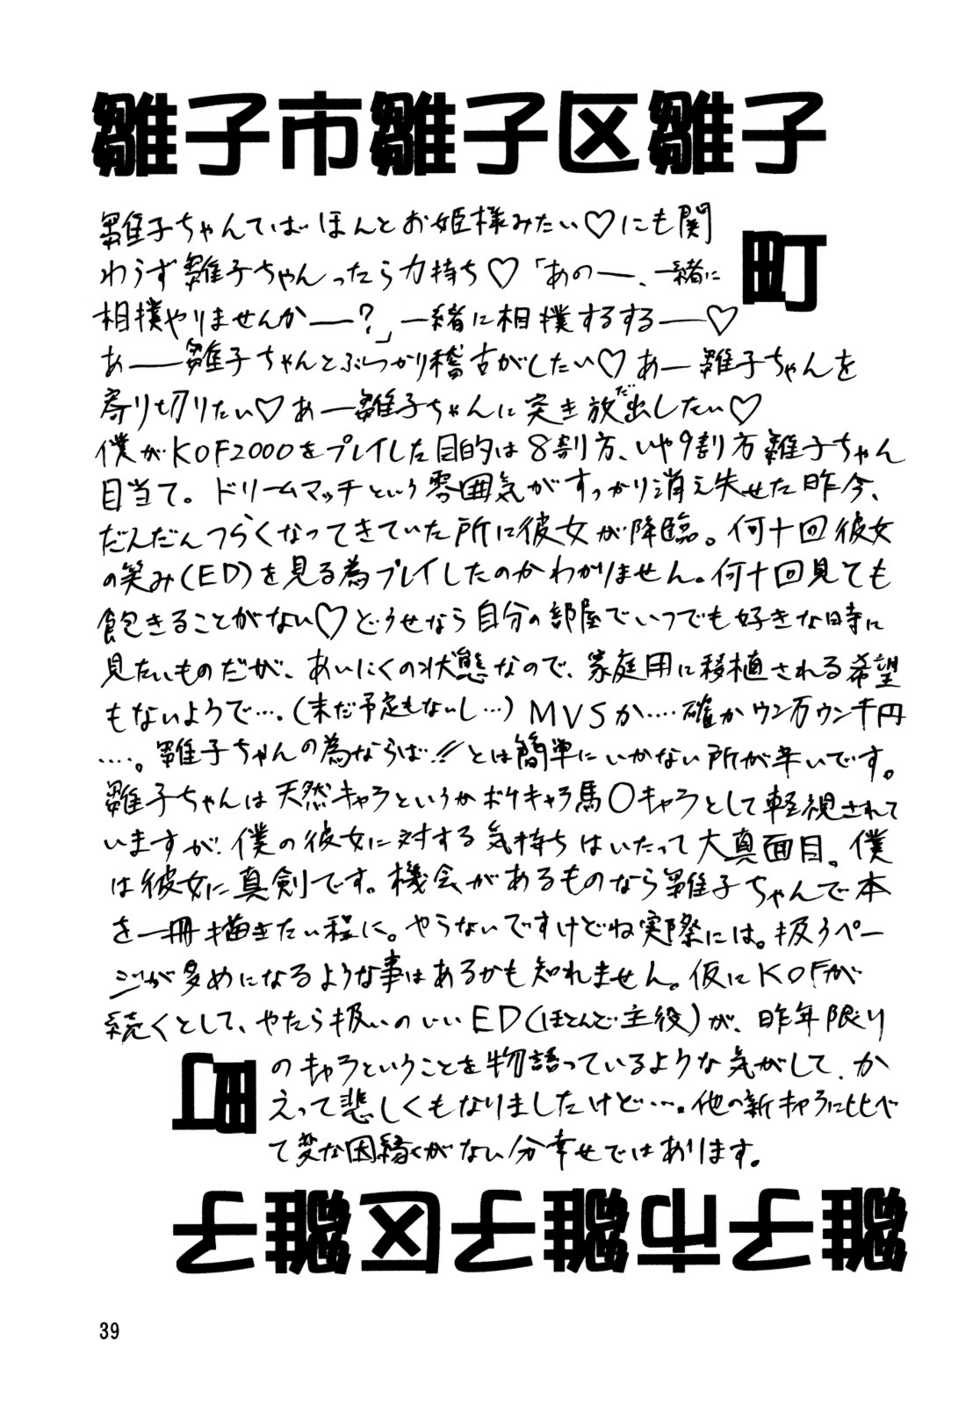 雛子市雛子区雛子
町
雛子ちゃんてばほんとお姫様みたい♡にも関
わらず雛子ちゃんったら力持ち♡「あのー、一緒に
相撲やりませんかー?」一緒に相撲するするー♡
あー雛子ちゃんとぶつかり稽古がしたい♡あー雛子ちゃんを
寄り切りたい♡あー雛子ちゃんに突き放出したい♡
だ
僕がKOF2000をプレイした目的は8割方、いや9割方雛子ちゃん
目当て。ドリームマッチという雰囲気がすっかり消え失せた昨今、
だんだんつらくなってきていた所に彼女が降臨。何十回彼女
の笑み(ED)を見る為プレイしたのかわかりません。何十回見ても
飽きることがない♡どうせなら自分の部屋でいつでも好きな時に
見たいものだが、あいにくの状態なので、家庭用に移植される希望
もないようで…。(未だ予定もないし…)MVSか‥‥確かウン万ウン千円
‥‥。雛子ちゃんの為ならば!!とは簡単にいかない所が辛いです。
雛子ちゃんは天然キャラというかボケキャラ馬〇キャラとして軽視されて
いますが、僕の彼女に対する気持ちはいたって大真面目。僕
は彼女に真剣です。機会があるものなら雛子ちゃんで本
を一冊描きたい程に。やらないですけどね実際には。扱うペー
ジが多めになるような事はあるかも知れません。仮にKOFが
続くとして、やたら扱いのいいED(ほとんど主役)が、昨年限り
のキャラということを物語っているような気がして、か
えって悲しくもなりましたけど…。他の新キャラに比べ
て変な因縁がない分幸せではあります。
町
雛子市雛子区雛子
39